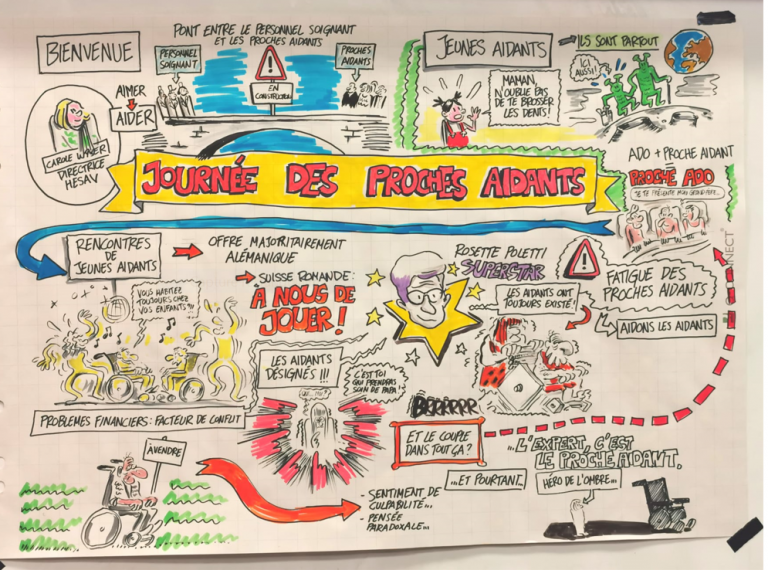 BIENVENUE
PONT ENTRE LE PERSONNEL SOIGNANT
ET LES PROCHES AIDANTS
PERSONNEL
SOIGNANT
PROCHES
AIDANTS
EN
CONSTRUCTION
AIMER
AIDER
CAROLE
DIRECTRICE
HESAV
JEUNES AIDANTS
ILS SONT PARTOUT
ICI
AUSSI!
MAMAN,
N'OUBLIE PAS
DE TE BROSSER
LES DENTS!
JOURNÉE DES PROCHES AIDANTS
ADO + PROCHE AIDANT
PROCHE ADO
JE TE PRÉSENTE MON GRAND-PÈRE...
RENCONTRES
DE
JEUNES AIDANTS
OFFRE MAJORITAIREMENT
ALÉMANIQUE
SUISSE ROMANDE:
À NOUS DE
JOUER!
VOUS HABITEZ
TOUJOURS CHEZ
VOS ENFANTS?!!
ROSETTE POLETTI
SUPERSTAR
LES AIDANTS ONT
TOUJOURS EXISTÉ!
FATIGUE DES
PROCHES AIDANTS
AIDONS LES AIDANTS
LES AIDANTS
DÉSIGNÉS!!!
C'EST TOI
QUI PRENDRAS
SOIN DE PAPA
PROBLÈMES FINANCIERS: FACTEUR DE CONFLIT
À VENDRE
ET LE COUPLE
DANS TOUT ÇA?
- SENTIMENT DE
CULPABILITÉ...
- PENSÉE
PARADOXALE...
...ET POURTANT...
...L'EXPERT, C'EST
LE PROCHE AIDANT.
HÉRO DE L'OMBRE...